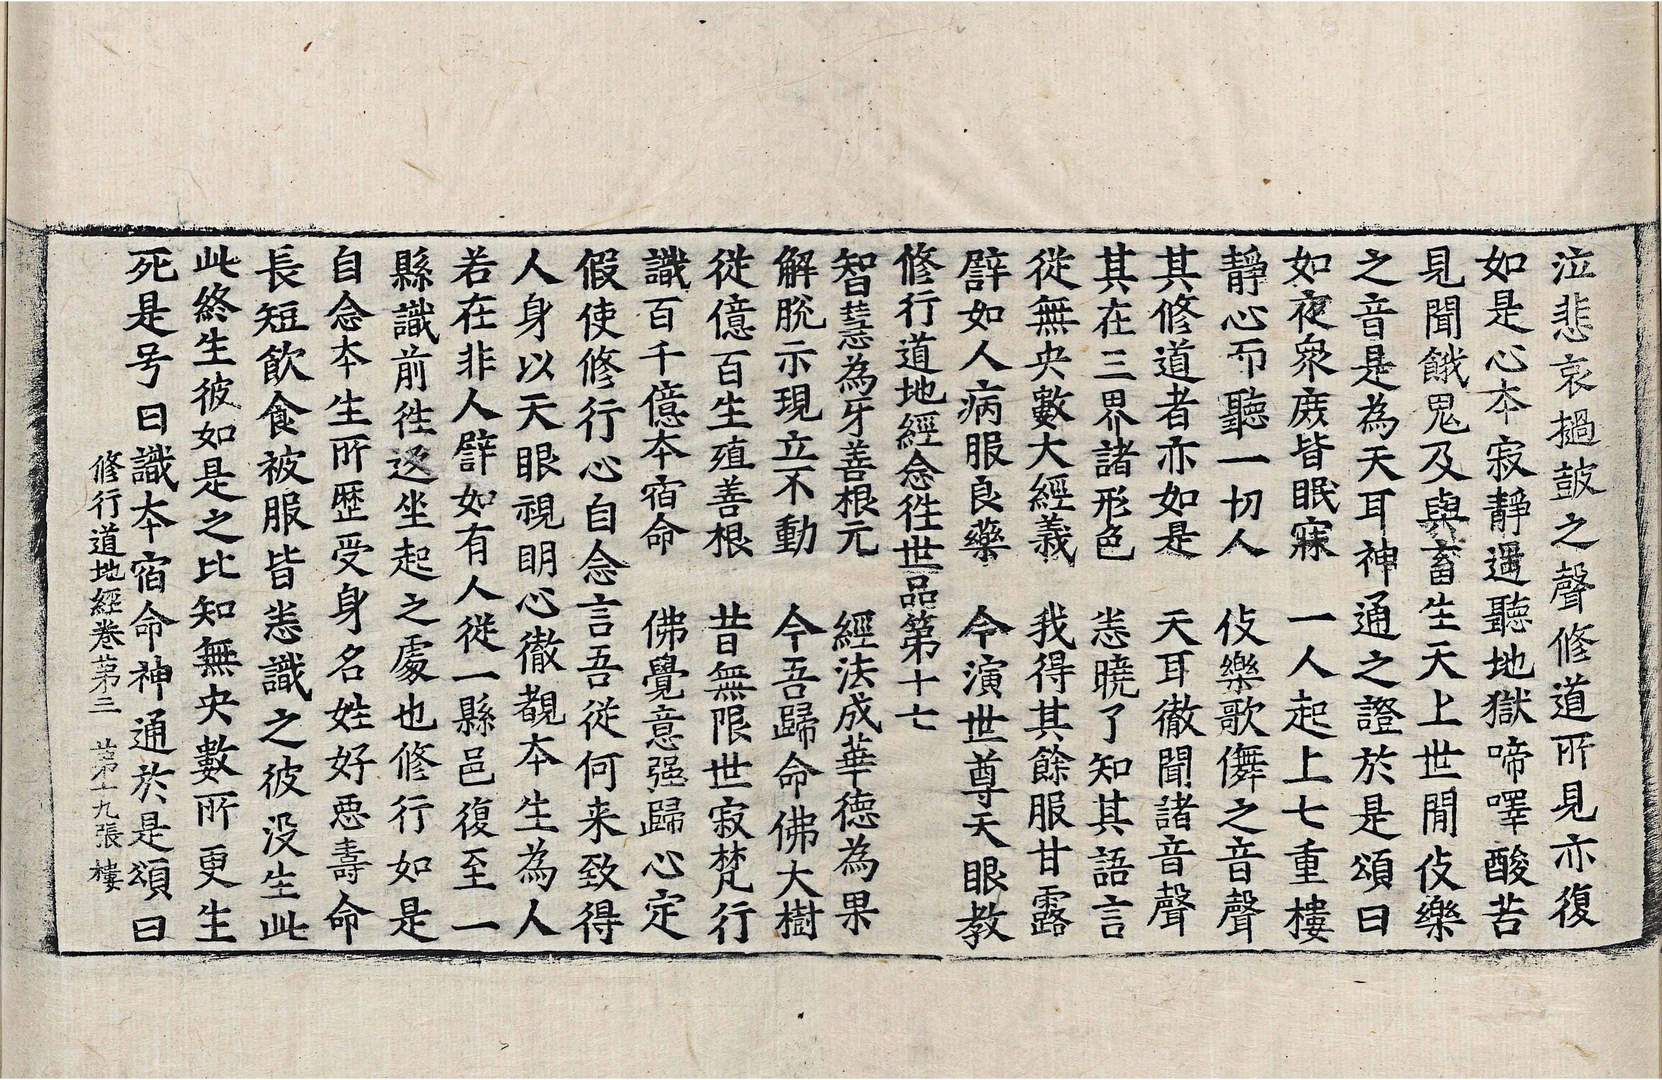 泣悲哀撾鼓之聲修道所見亦復
如是心本寂靜遥聽地獄啼嘷酸苦
見聞餓鬼及與畜生天上世閒伎樂
之音是為天耳神通之證於是頌曰
如夜衆庶皆眠寐　一人起上七重樓
靜心而聽一切人　伎樂歌儛之音聲
其修道者亦如是　天耳徹聞諸音聲
其在三界諸形色　悉曉了知其語言
從無央數大經義　我得其餘服甘露
譬如人病服良藥　今演世尊天眼教
修行道地經念往世品第十七
智慧為牙善根元　經法成華德為果
解脫示現立不動　今吾歸命佛大樹
從億百生殖善根　昔無限世寂梵行
識百千億本宿命　佛覺意强歸心定
假使修行心自念言吾從何来致得
人身以天眼視明心徹覩本生為人
若在非人譬如有人從一縣邑復至一
縣識前徃返坐起之處也修行如是
自念本生所歷受身名姓好惡壽命
長短飲食被服皆悉識之彼没生此
此終生彼如是之比知無央數所更生
死是号曰識本宿命神通於是頌曰
修行道地經卷第三　第十九張　樓